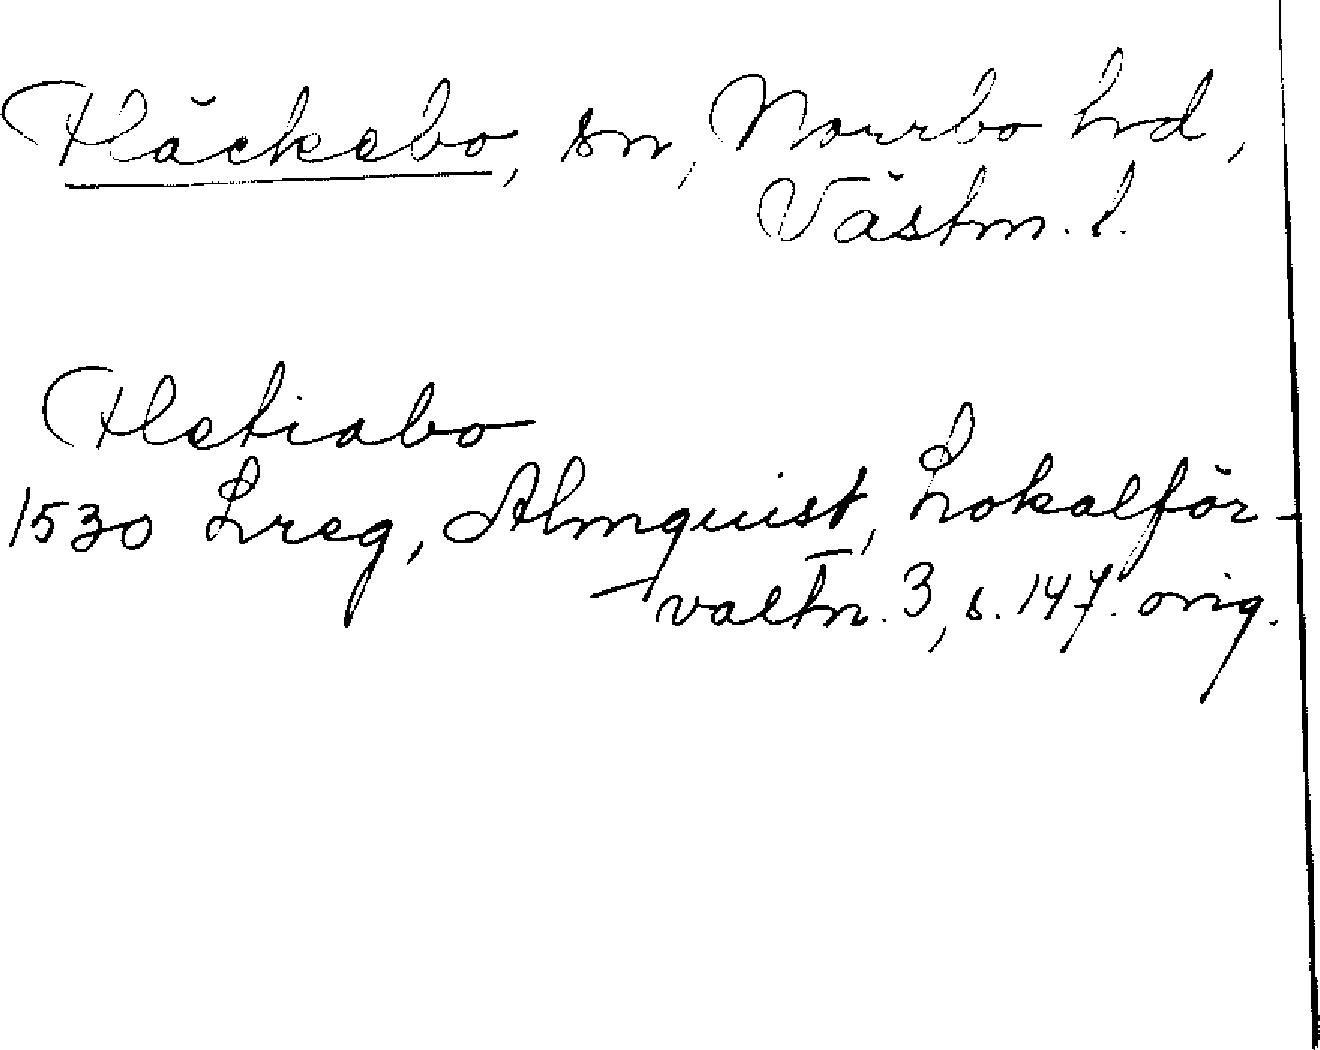 Fläckebo, sn, Norrbo hd,
Västm. l.
Fletiabo
1530 Lreg, Almquist, Lokalför-
valtn. 3, s. 147. orig.